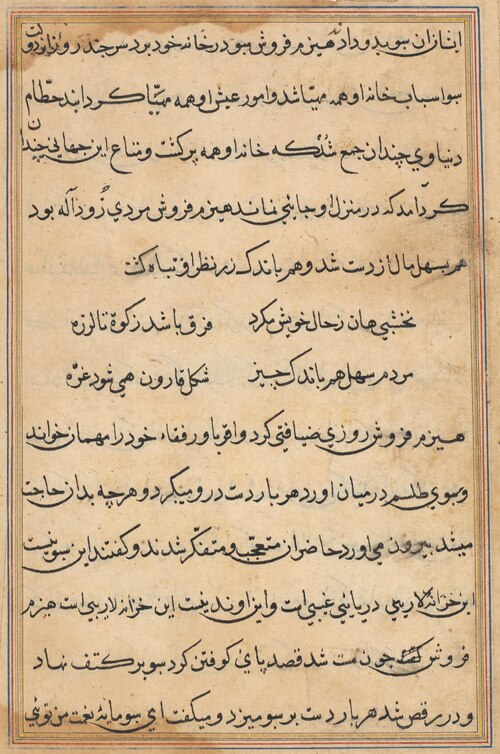 ایشان سبو بدو دادند هیزم فروش سبو در خانه خود برد سر چند روز از دولت
سبو اسباب خانه او همه مهیّا شد و امور عیش او همه مهیّا کردانید حطّام
دنیاوی چندان جمع شد که خانه او همه پر کشت و متاع این جهانی چندان
کرد آمد که در منزل او جائی نماند هیزم فروش مردی زود آله بود
هم بسهل مال از دست شد و هم باندک زر نظر او تباه کشت
نخشبی هان ز حال خویش مکرد فرق باشد زکوة تا لرزه
مردم سهل هم باندک چیز شکل قارون همی شود غرّه
هیزم فروش روزی ضیافتی کرد و اقربا و رفقاء خود را مهمان خواند
و سبوی طلسم درمیان اورد هر بار دست درو میکرد و هرچه بدان حاجت
میشد بیرون می اورد حاضران متعجّب و متفکّر شدند و کفتند این سبو نیست
این خزانه لاریبی دریائی غیبی است و این اوند نیست این خزانه لاریبی است هیزم
فروش چون مست شد قصد پای کوفتن کرد سبو بر کتف نهاد
و در رقص شد هر بار دست بر سبو میزد و میکفت ای سبو مایهٔ نعمت من توئی